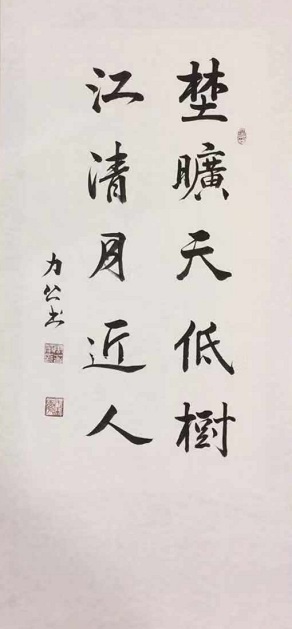 埜曠天低樹
江清月近人
力公书